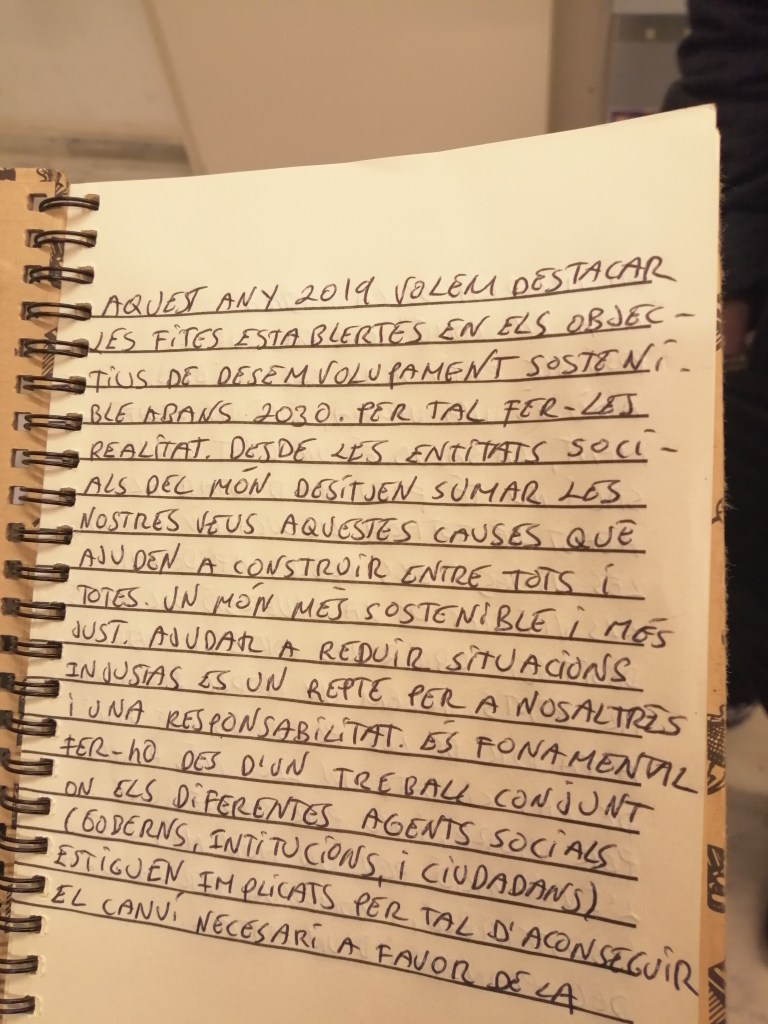 AQUEST ANY 2019 VOLEM DESTACAR
LES FITES ESTABLERTES EN ELS OBJEC-
TIUS DE DESEMVOLUPAMENT SOSTENI-
BLE ABANS 2030. PER TAL FER-LES
REALITAT. DESDE LES ENTITATS SOCI-
ALS DEL MÓN DESITJEN SUMAR LES
NOSTRES VEUS AQUESTES CAUSES QUE
AJUDEN A CONSTRUIR ENTRE TOTS I
TOTES. UN MÓN MÉS SOSTENIBLE I MÉS
JUST. AJUDAR A REDUIR SITUACIONS
INJUSTAS ES UN REPTE PER A NOSALTRES
I UNA RESPONSABILITAT. ÉS FONAMENTAL
FER-HO DES D'UN TREBALL CONJUNT
ON ELS DIFERENTES AGENTS SOCIALS
(GODERNS, INTITUCIONS, I CIUDADANS)
ESTIGUEN IMPLICATS PER TAL D'ACONSEGUIR
EL CANVÍ NECESARI A FAVOR DE LA